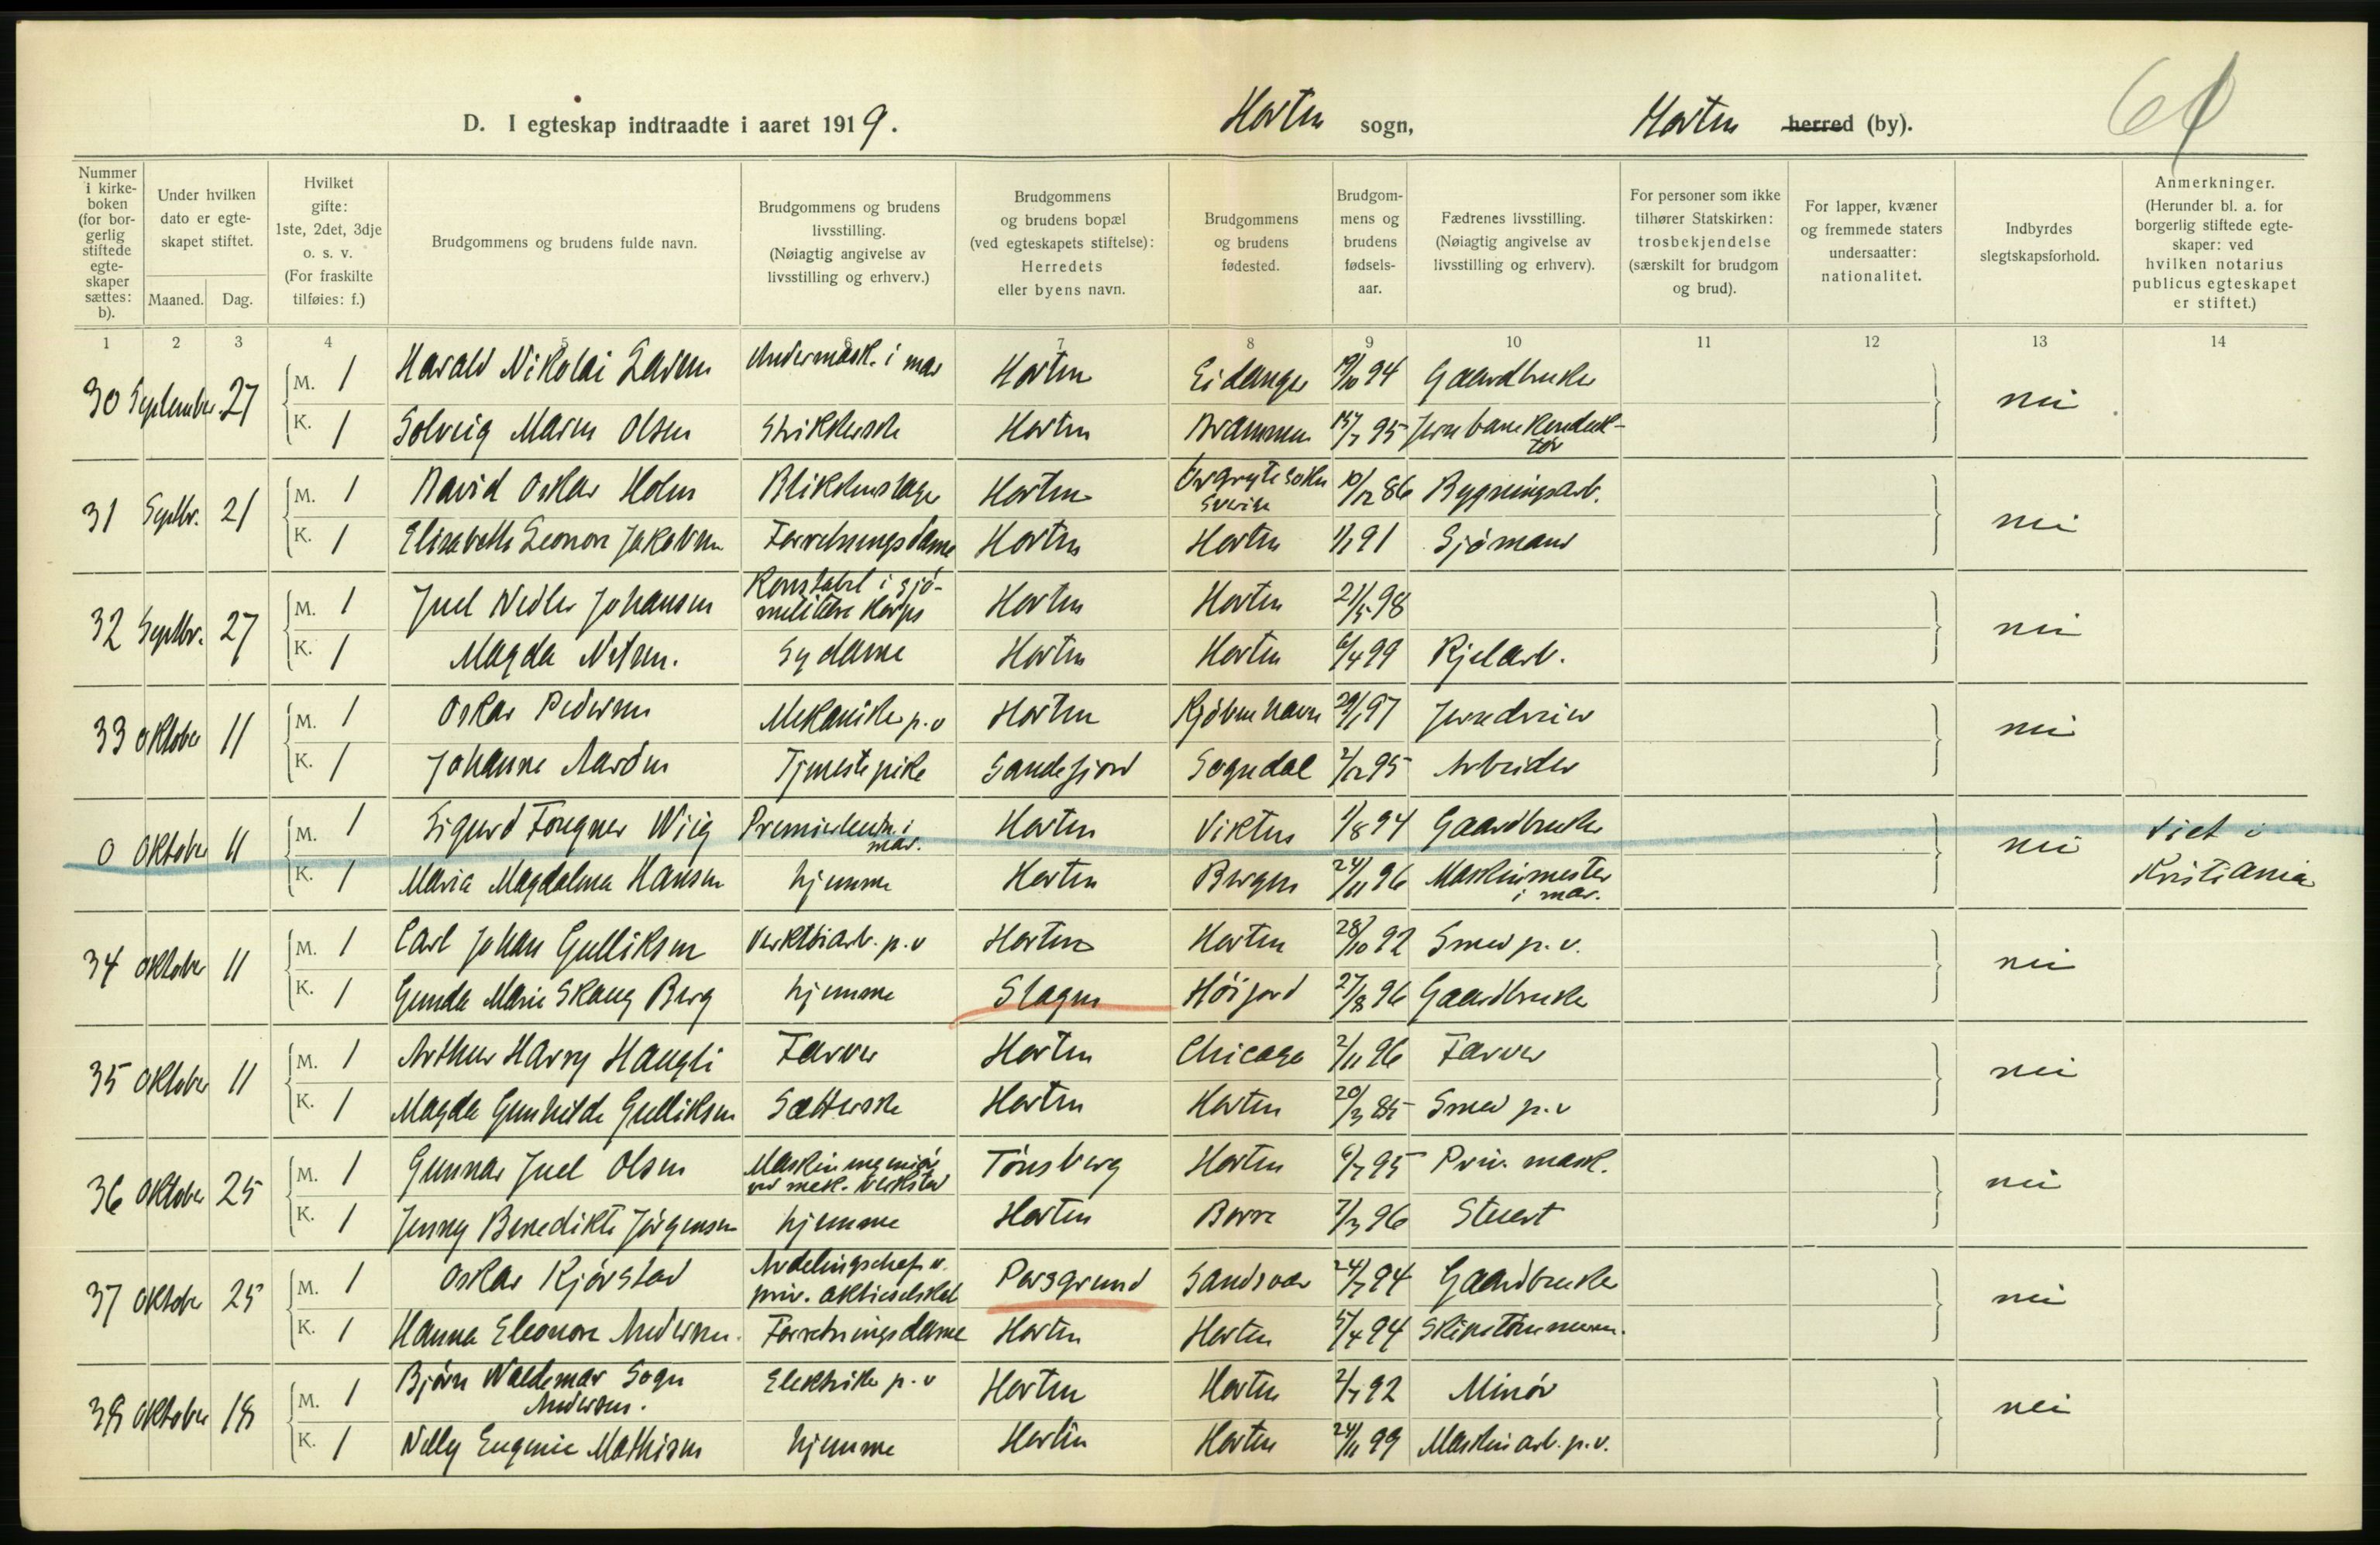 D. I egteskap indtraadte i aaret 1919. Horten sogn, Horten herred (by).
Nummer i kirkeboken (for borgerlig stiftede egteskaper sættes: b).
Under hvilken dato er egteskapet stiftet.
Maaned. Dag.
Hvilket gifte: 1ste, 2det, 3dje o. s. v. (For fraskilte tilføies: f.)
Brudgommens og brudens fulde navn.
Brudgommens og brudens livsstilling. (Nøiagtig angivelse av livsstilling og erhverv.)
Brudgommens og brudens bopæl (ved egteskapets stiftelse): Herredets eller byens navn.
Brudgommens og brudens fødested.
Brudgommens og brudens fødselsaar.
Fædrenes livsstilling. (Nøiagtig angivelse av livsstilling og erhverv).
For personer som ikke tilhører Statskirken: trosbekjendelse (særskilt for brudgom og brud).
For lapper, kvæner og fremmede staters undersaatter: nationalitet.
Indbyrdes slegtskapsforhold.
Anmerkninger. (Herunder bl. a. for borgerlig stiftede egteskaper: ved hvilken notarius publicus egteskapet er stiftet.)
1 2 3 4 5 6 7 8 9 10 11 12 13 14
30 September 27 M. 1 Harald Nikolai Larsen Undermask. i mar Horten Eidanger 19/10 94 Gaardbruker nei
K. 1 Solveig Marie Olsen Strikkerske Horten Drammen 95 Jernbanekonduktør
31 Septbr. 21 M. 1 David Oskar Holm Blikkenslager Horten Örgryte Soken Sverige 10/12 86 Bygningsarb. nei
K. 1 Elisabeth Leonore Jakobsen Forretningsdame Horten Horten 1/1 91 Sjømand
32 Septbr. 27 M. 1 Juel Johansen Konstabel i sjømilitære Korps Horten Horten 21/5 98 nei
K. 1 Magda Nilsen. Sydame Horten Horten 6/4 99 Kjelarb.
33 Oktober 11 M. 1 Oskar Pedersen Mekaniker p.v Horten Kjøbenhavn 29/1 97 Jerndreier nei
K. 1 Johanne Tjenestepike Sandefjord Sogndal 2/12 95 Arbeider
0 Oktober 11 M. 1 Sigurd Fougner Wiig Premierleutn. i mar. Horten 1/8 94 Gaardbruker nei Viet i Kristiania
K. 1 Maria Magdalena Hansen hjemme Horten Bergen 24/11 96 Maskinmester i mar.
34 Oktober 11 M. 1 Carl Johan Gulliksen Verktøiarb. p.v Horten Horten 28/10 92 Smed p.v. nei
K. 1 Gunda Marie Skaug Berg hjemme Slagen Høijord 27/8 96 Gaardbruker
35 Oktober 11 M. 1 Arthur Harry Haugli Farver Horten Chicago 2/11 96 Farver nei
K. 1 Magda Gunhilde Gulliksen Sætterske Horten Horten 20/3 85 Smed p.v
36 Oktober 25 M. 1 Gunnar Juel Olsen Maskiningeniør ved mek. Verksted Tønsberg Horten 6/7 95 Priv. mask. nei
K. 1 Jenny Benedikte Jørgensen hjemme Horten Borre 7/3 96 Stuert
37 Oktober 25 M. 1 Oskar Kjørstad Avdelingschef v. priv. aktieselskab Porsgrund Sandsvær 24/7 94 Gaardbruker nei
K. 1 Hanna Eleonore Andersen. Forretningsdame Horten Horten 5/4 94 Skibstømmerm.
38 Oktober 18 M. 1 Bjørn Waldemar Sogn Andersen. Elektriker p.v Horten Horten 2/7 92 Minør nei
K. 1 Nelly Eugenie Mathisen hjemme Horten Horten 24/11 99 Maskinarb. p.v.